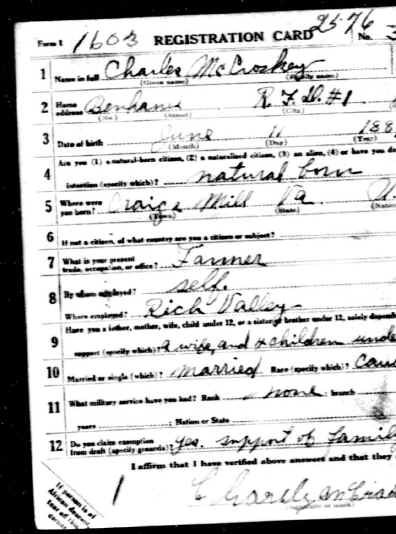 Form 1 1603 REGISTRATION CARD 2576 No.
1 Name in full Charles McCroskey
(Given name) (Family name)
2 Home address Benhams R.F.D. #1
(No.) (Street) (City)
3 Date of birth June 11 188
(Month) (Day) (Year)
4 Are you (1) a natural-born citizen, (2) a naturalized citizen, (3) an alien, (4) or have you de
intention (specify which)? natural born
5 Where were you born? Craigs Mill Va U.
(Town) (State) (Nation
6 If not a citizen, of what country are you a citizen or subject?
7 What is your present trade, occupation, or office? Farmer
8 By whom employed? self.
Where employed? Rich Valley
9 Have you a father, mother, wife, child under 12, or a sister or brother under 12, solely depende
support (specify which)? a wife, and children unde
10 Married or single (which)? Married Race (specify which)? Cau
11 What military service have you had? Rank none; branch
years ; Nation or State
12 Do you claim exemption from draft (specify grounds)? Yes. support of family
I affirm that I have verified above answers and that they
If person is of African descent, tear off